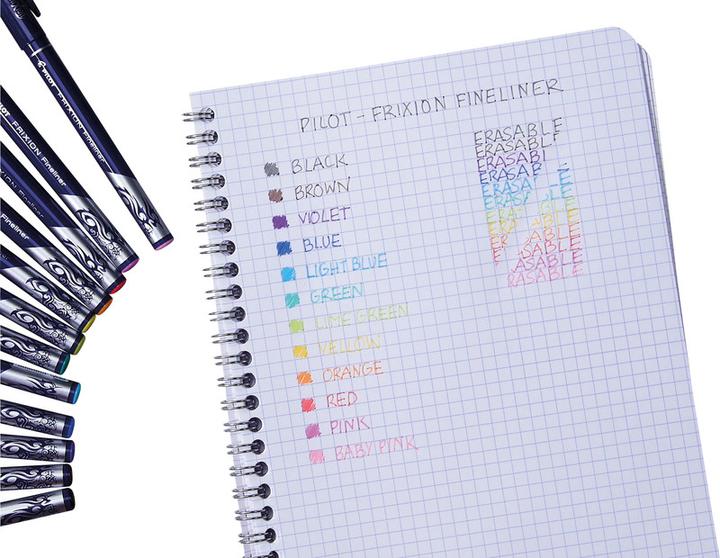 PILOT FRIXION Fineliner
FRIXION Fineliner
Fineliner
Fineliner
PILOT - FRIXION FINELINER
BLACK
BROWN
VIOLET
BLUE
LIGHT BLUE
GREEN
LIME GREEN
YELLOW
ORANGE
RED
PINK
BABY PINK
ERASABLE
ERASABLE
ERASABL
ERASAB
ERASA E
ERASA E
ERA
ERA
ER ABLE
ER SABLE
ASABLE
RASABLE